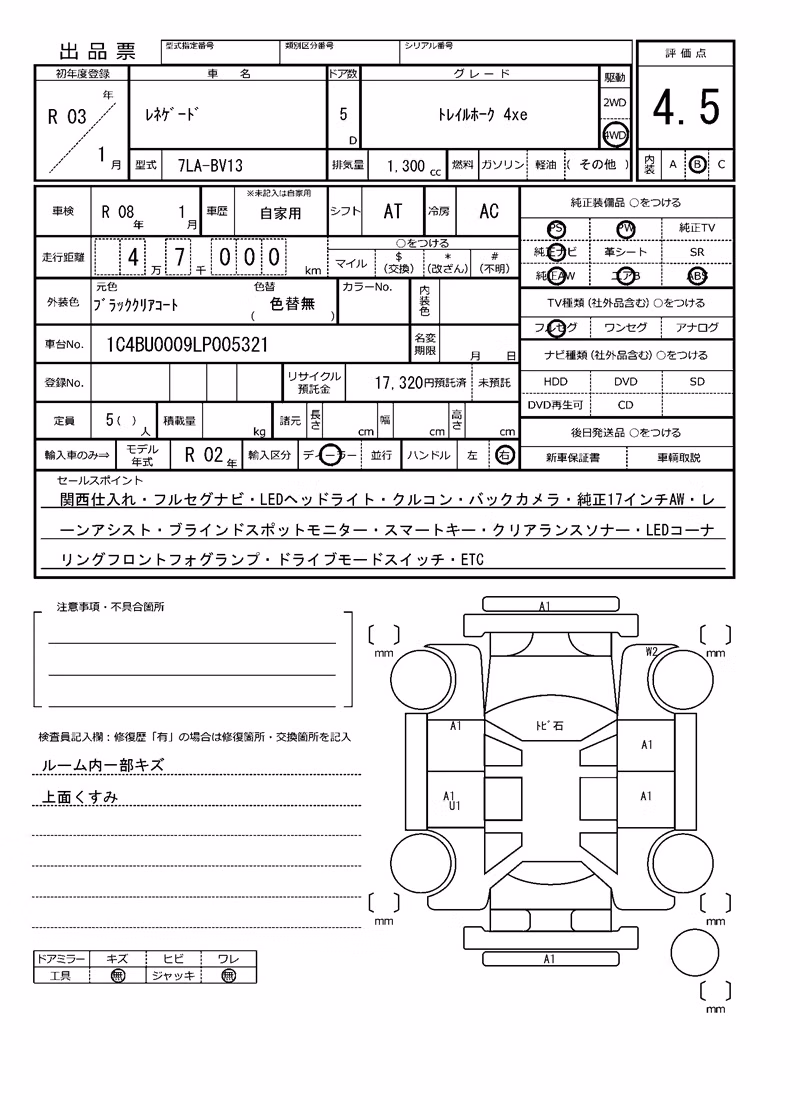 出品票
型式指定番号 類別区分番号 シリアル番号
評価点
4.5
内装 A B C
初年度登録 車名 ドア数 グレード 駆動
R 03 年 1 月
ﾚﾈｹﾞｰﾄﾞ
5 D
ﾄﾚｲﾙﾎｰｸ 4xe
2WD
4WD
型式 7LA-BV13 排気量 1,300 cc 燃料 ガソリン 軽油 ( その他 )
車検 R 08 年 1 月 車歴 ※未記入は自家用 自家用 シフト AT 冷房 AC
走行距離 4 万 7 千 0 0 0 km
○をつける
マイル $(交換) *(改ざん) #(不明)
外装色 元色 ﾌﾞﾗｯｸｸﾘｱｺｰﾄ 色替 色替無 ( ) カラーNo. 内装色
車台No. 1C4BU0009LP005321 名変期限 月 日
登録No. リサイクル預託金 17,320円預託済 未預託
定員 5( ) 人 積載量 kg 諸元 長さ cm 幅 cm 高さ cm
輸入車のみ⇒ モデル年式 R 02 年 輸入区分 ディーラー 並行 ハンドル 左 右
純正装備品 ○をつける
PS PW 純正TV
純正ナビ 革シート SR
純正AW エアB ABS
TV種類 (社外品含む) ○をつける
フルセグ ワンセグ アナログ
ナビ種類 (社外品含む) ○をつける
HDD DVD SD
DVD再生可 CD
後日発送品 ○をつける
新車保証書 車輌取説
セールスポイント
関西仕入れ・フルセグナビ・LEDヘッドライト・クルコン・バックカメラ・純正17インチAW・レ
ーンアシスト・ブラインドスポットモニター・スマートキー・クリアランスソナー・LEDコーナ
リングフロントフォグランプ・ドライブモードスイッチ・ETC
注意事項・不具合箇所
検査員記入欄：修復歴「有」の場合は修復箇所・交換箇所を記入
ルーム内一部キズ
上面くすみ
ドアミラー キズ ヒビ ワレ
工具 無 ジャッキ 無
A1
mm
mm
W2
A1
ﾄﾋﾞ石
A1
A1
U1
A1
mm
mm
A1
mm